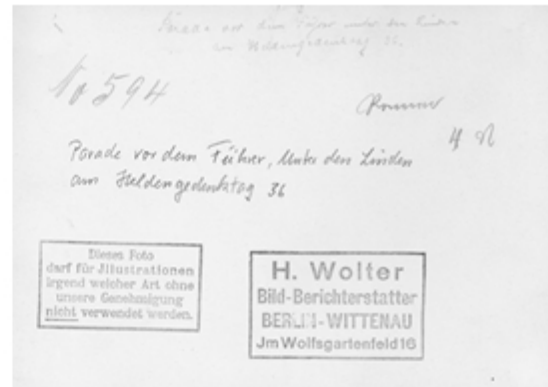 Parade vor dem Führer unter den Linden
am Heldengedenktag 36.
No 594
4
Parade vor dem Führer, Unter den Linden
am Heldengedenktag 36
Dieses Foto
darf für Jllustrationen
irgend welcher Art ohne
unsere Genehmigung
nicht verwendet werden.
H. Wolter
Bild-Berichterstatter
BERLIN-WITTENAU
Jm Wolfsgartenfeld 16